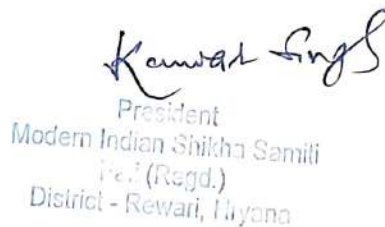 Singh
President
Modern Indian Shikha Samiti
(Regd.)
District - Rewari,